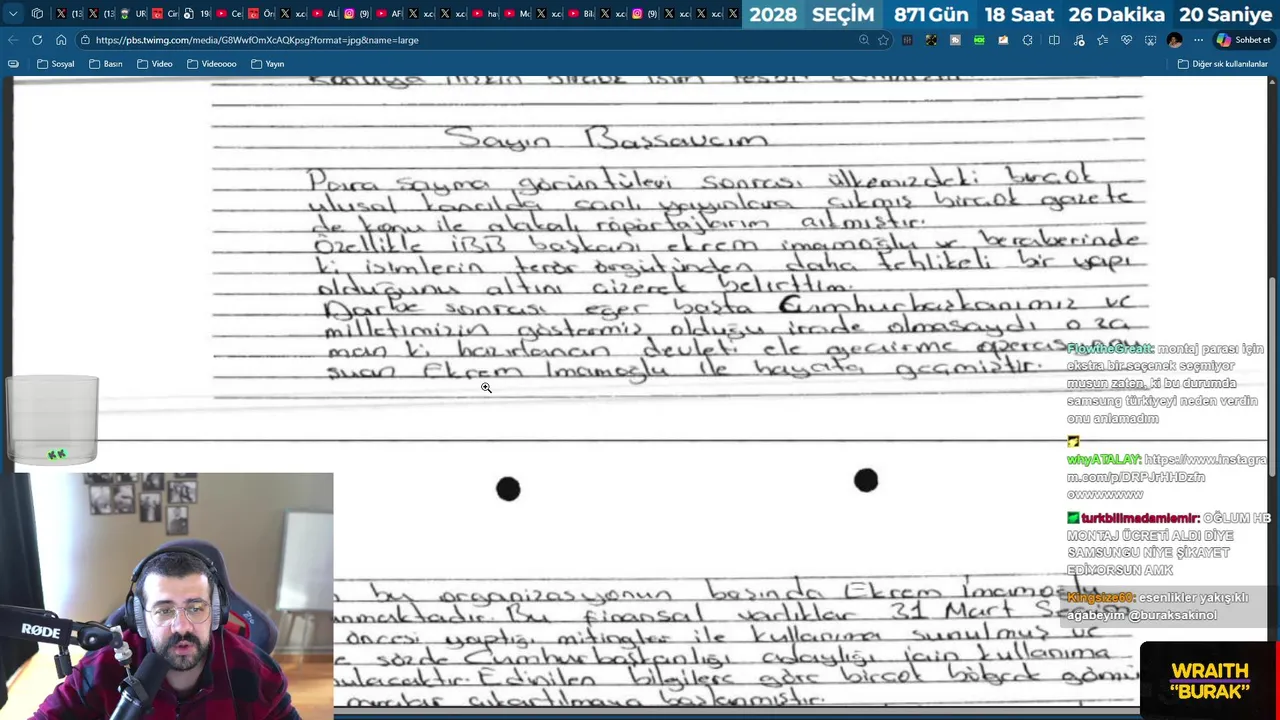 2028 SEÇİM 871 Gün 18 Saat 26 Dakika 20 Saniye
https://pbs.twimg.com/media/G8WwfOmXcAQKpsg?format=jpg&name=large
Sohbet et
Sosyal Basın Video Videoooo Yayın Diğer sık kullanılanlar
Sayın Başsavcım
Para sayma görüntüleri sonrası ülkemizdeki birçok
ulusal kanalda canlı yayınlara çıkmış birçok gazete
de konu ile alakalı röportajlarım çıkmıştır.
Özellikle İBB başkanı ekrem imamoğlu ve beraberinde
ki isimlerin terör örgütünden daha tehlikeli bir yapı
olduğunu altını çizerek belirttim.
Darbe sonrası eğer başta Cumhurbaşkanımız ve
milletimizin göstermiş olduğu irade olmasaydı o za
man ki hazırlanan devleti ele geçirme
Ekrem Imamoğlu ile hayata geçmiştir.
bu organizasyonun başında Ekrem
Bu finansal varlıklar 31 Mart
öncesi yaptığı mitingler ile kullanıma sunulmuş ve
sözde Cumhurbaşkanlığı adaylığı için kullanıma
Edinilen bilgilere göre birçok bölgede
FlowtheGreatt: montaj parası için
ekstra bir seçenek seçmiyor
musun zaten, ki bu durumda
samsung türkiyeyi neden verdin
onu anlamadım
whyATALAY: https://www.instagra
m.com/p/DRPJrHHDzfn
owwwwwww
turkbilimadamiemir: OĞLUM HB
MONTAJ ÜCRETİ ALDI DİYE
SAMSUNGU NİYE ŞİKAYET
EDİYORSUN AMK
Kingsize60: esenlikler yakışıklı
agabeyim @buraksakinol
RØDE
WRAITH
"BURAK"